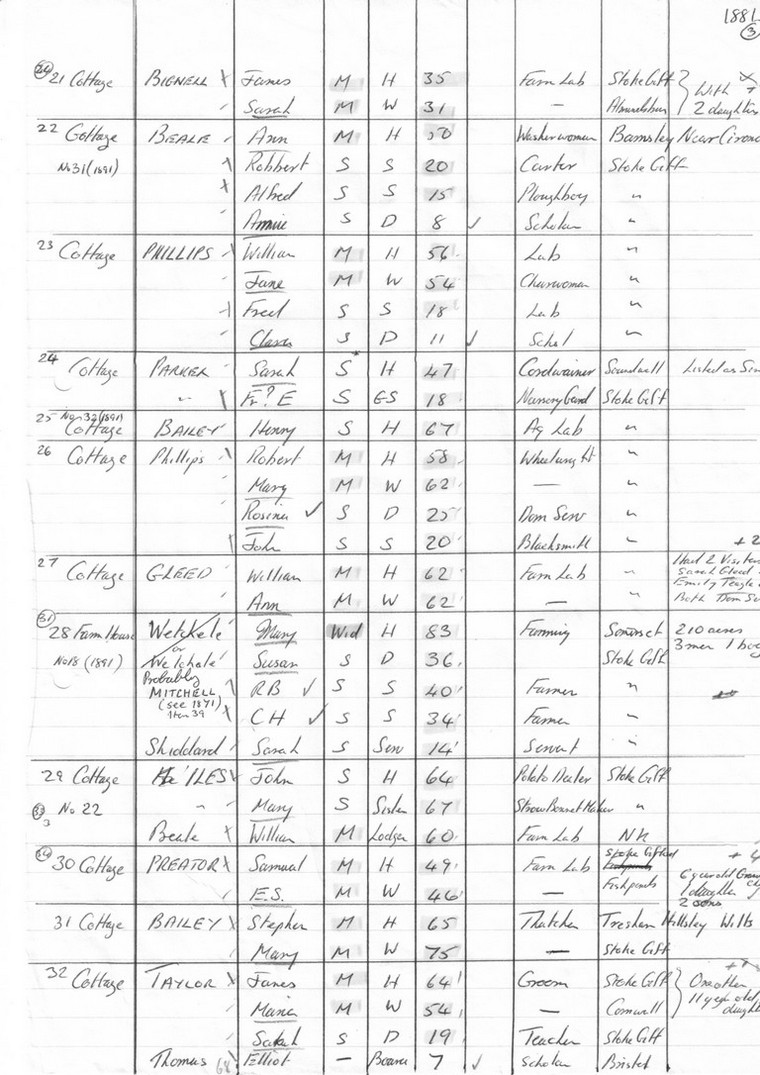 1881
3
24 21 Cottage BIGNELL X James M H 35 Farm Lab Stoke Giff } With
Sarah M W 31 — Almondsbury 2 daughters
22 Cottage BEALE Ann M H 50 Washerwoman Barnsley Near Ciren
No 31 (1891) Robbert S S 20 Carter Stoke Giff
X Alfred S S 15 Ploughboy "
Annie S D 8 ✓ Scholar "
23 Cottage PHILLIPS William M H 56 Lab "
Jane M W 54 Charwoman "
Fred S S 18 Lab "
Clara S D 11 ✓ Schol "
24 Cottage PARKER Sarah S * H 47 Cordwainer Soundwell Listed as Sin
" Fr? E S GS 18 Nursery Gard Stoke Giff
25 No 32 (1891)
Cottage BAILEY Henry S H 67 Ag Lab "
26 Cottage Phillips Robert M H 58 Wheelwright "
Mary M W 62 — "
Rosina ✓ S D 25 Dom Serv "
John S S 20 Blacksmith " + 2
27 Cottage GLEED William M H 62 Farm Lab " Had 2 Visitors
Sarah Gleed
Emily Teagle
Ann M W 62 — " Both Dom Se
31
28 Farm House Wetchele Mary Wid H 83 Farming Somerset 210 acres
or 3 men 1 boy
No 18 (1891) Welchale Susan S D 36 Stoke Giff
Probably
MITCHELL RB ✓ S S 40 Farmer "
(see 1871)
Item 39 X CH ✓ S S 34 Farmer "
Shiddard Sarah S Serv 14 Servant "
29 Cottage ILES John S H 64 Potato Dealer Stoke Giff
33 No 22 " Mary S Sister 67 Straw Bonnet Maker "
3
Beale X William M Lodger 60 Farm Lab NK
34 30 Cottage PREATOR X Samual M H 49 Farm Lab Stoke Gifford + 4
E.S. M W 46 — Fishponds 6 year old
1 daughter
2 sons
31 Cottage BAILEY X Stephen M H 65 Thatcher Tresham Hillsley Wilts
Mary M W 75 — Stoke Giff
32 Cottage TAYLOR X James M H 64 Groom Stoke Giff } One other
Maria M W 54 — Cornwall 11 year old
daughter
Sarah S D 19 Teacher Stoke Giff
Thomas 68 Elliot — Boarder 7 ✓ Scholar Bristol